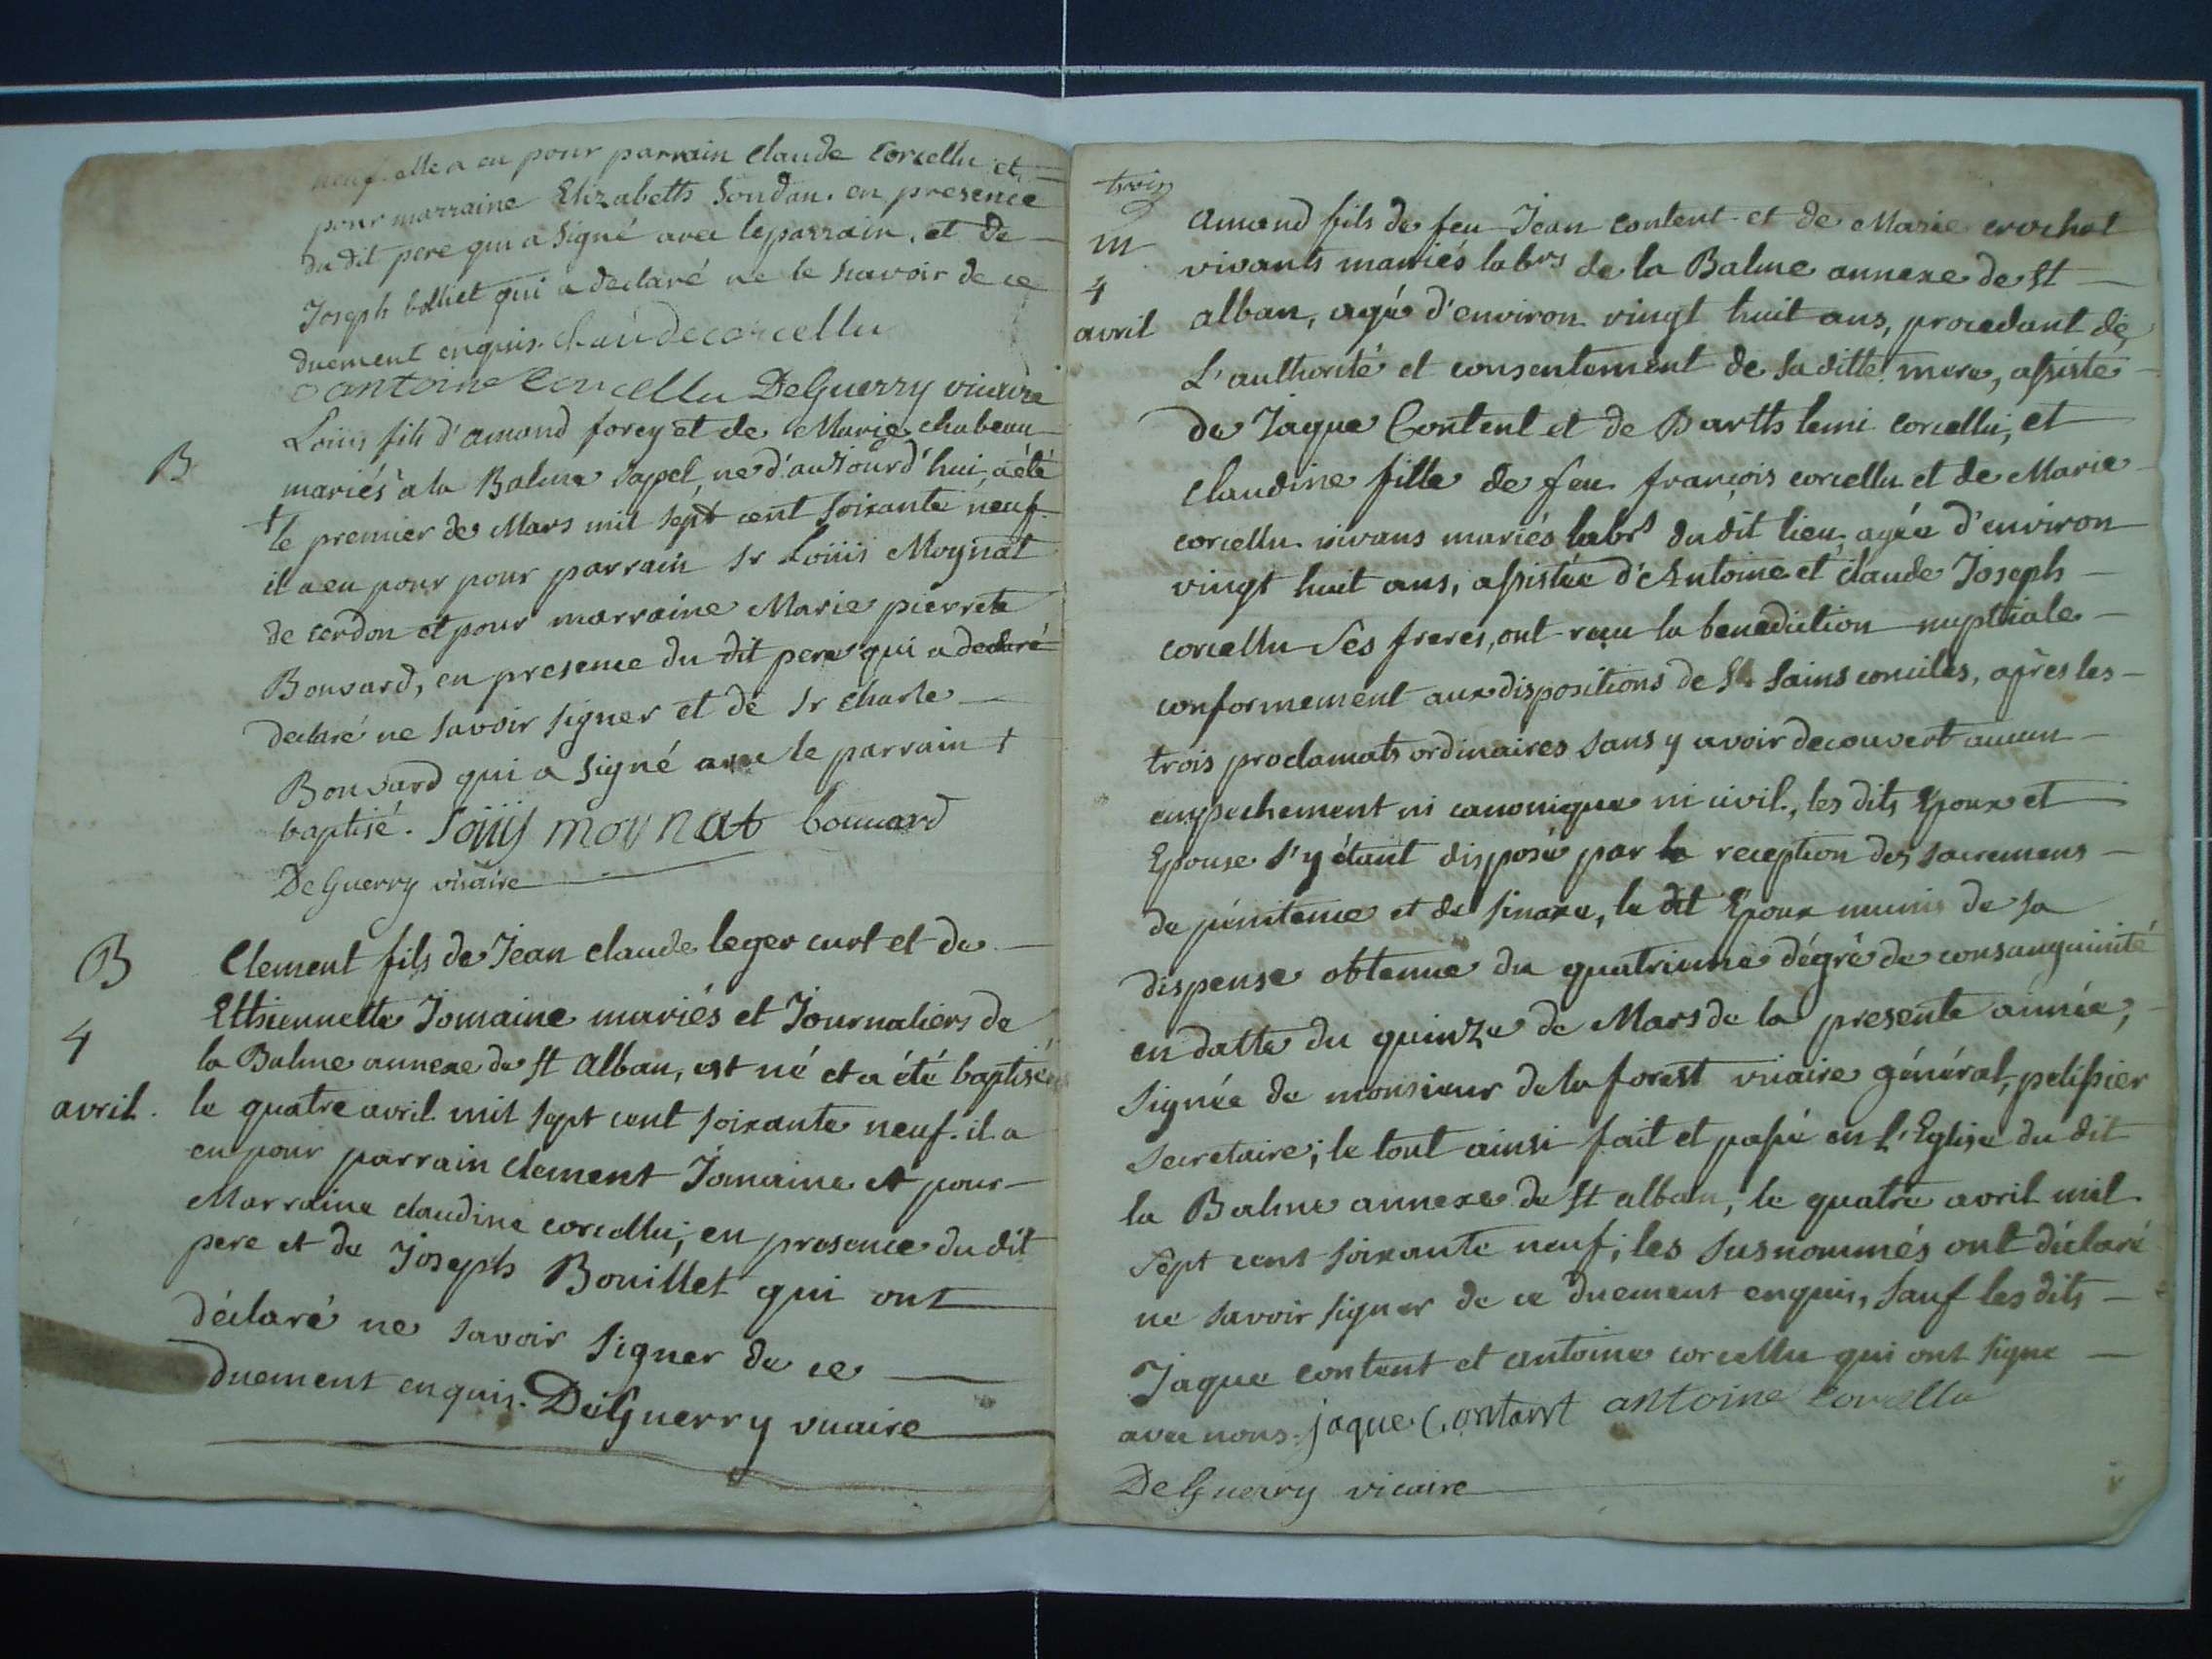 neuf. elle a eu pour parrain Claude Corcellu et
pour marraine Elizabeth Soudan. en presence
du dit pere qui a signé avec le parrain. et de
Joseph qui a declaré ne le savoir de ce
duement enquis. Claude corcellu
antoine Corcellu DeGuerry vicaire
B
Loüis fils d'amond forey et de Marie chabeau
mariés a la Balme sapel, ne d'aujourd'hui, a été
† le premier de Mars mil sept cent soixante neuf
il a eu pour pour parrain sr Loüis Moynat
de cerdon et pour marraine Marie pierrete
Bouvard, en presence du dit pere qui a declaré
declaré ne savoir signer et de sr charle
Bouvard qui a signé avec le parrain †
baptisé. loüis moynat bouvard
DeGuerry vicaire
B
4
avril.
Clement fils de Jean claude leger curt et de
Etthiennette Jomaine mariés et Journaliers de
la Balme annexe de St Alban, est né et a été baptisé
le quatre avril mil sept cent soixante neuf. il a
eu pour parrain Clement Jomaine et pour
Marraine claudine corcellu; en presence du dit
pere et de Joseph Bouillet qui ont
déclaré ne savoir signer de ce
duement enquis. DeGuerry vicaire
trois
m
4
avril
Amond fils de feu Jean Content et de Marie crochet
vivants mariés labrs de la Balme annexe de St
alban, agé d'environ vingt huit ans, procedant de
L'authorité et consentement de saditte mere, assisté
de Jaque Content et de Barthlemi corcellu, et
Claudine fille de feu françois corcellu et de Marie
corcellu vivans mariés labrs du dit lieu, agée d'environ
vingt huit ans, assistée d'Antoine et claude Joseph
corcellu ses freres, ont reçu la benediction nuptiale
conformement aux dispositions de Sts Sains conciles, après les
trois proclamats ordinaires sans y avoir decouvert aucun
empechement ni canonique ni civil, les dits Epoux et
Epouse s'y étant disposé par la reception des sacremens
de pénitence et de sinaxe, le dit Epoux munis de sa
dispense obtenue du quatrieme dégré de consanguinité
en datte du quinze de Mars de la presente année,
signée de monsieur de la forest vicaire général, pelissier
secretaire; le tout ainsi fait et passé en l'Eglise du dit
la Balme annexe de St alban, le quatre avril mil
sept cens soixante neuf; les susnommés ont déclaré
ne savoir signer de ce duement enquis, sauf les dits
Jaque content et Antoine corcellu qui ont signe
avec nous. jaque Contant antoine Corcellu
DeGuerry vicaire